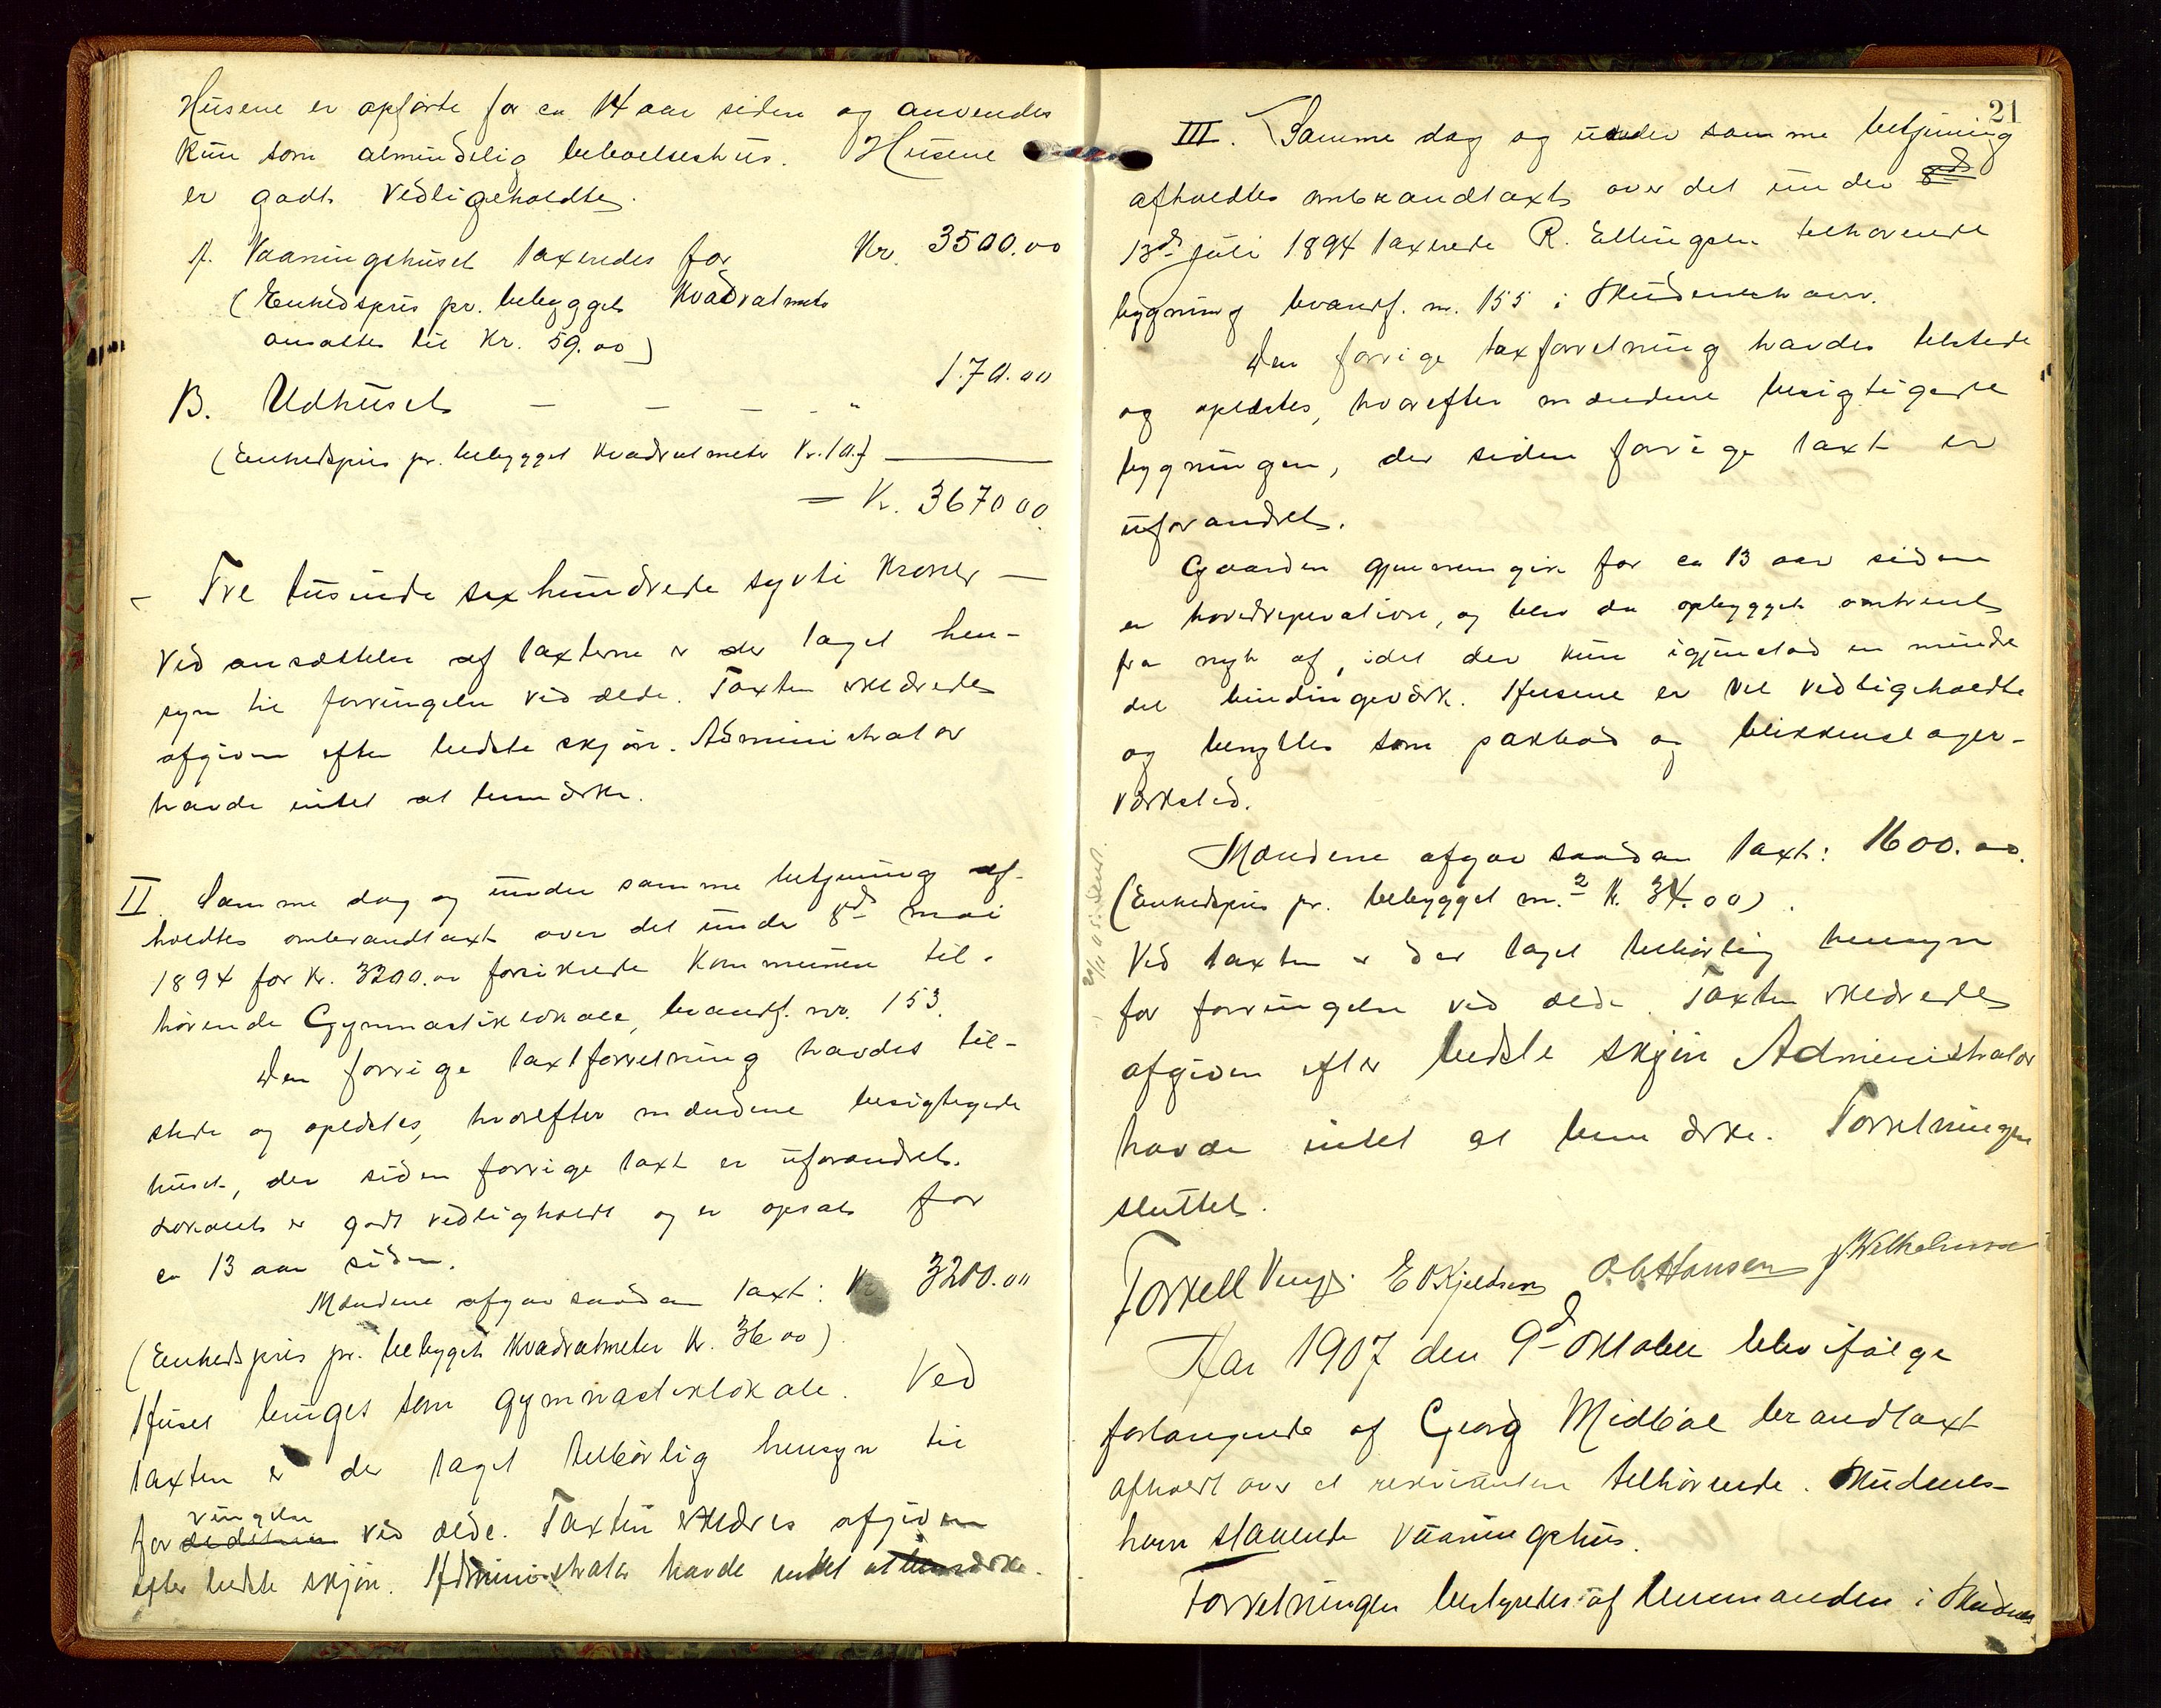 Husene er opførte for ca 14 aar siden og anvendes
kun som almindelig beboelseshus. Husene
er godt vedligeholdte.
A. Vaaningshuset taxeredes for Kr. 3500.00
(Enhedspris pr. bebygget kvadratmeter
ansattes til Kr. 59.00)
B. Udhuset — — — - " 170.00
(Enhedspris pr. bebygget kvadratmeter Kr. 10.)
— K. 3670 00.
– Tre tusinde sexhundrede sytti kroner —
Ved ansættelsen af taxterne er der taget hen-
syn til forringelse ved ælde. Taxten erklæredes
afgiven efter bedste skjøn. Administrator
havde intet at bemærke.
II. Samme dag og under samme betjening af-
holdtes ombrandtaxt over det under 8de mai
1894 for Kr. 3200.00 forsikrede Kommunen til-
hørende Gymnastiklokale, brandf. nr. 153.
Den forrige taxtforretning havdes til-
stede og oplæstes, hvorefter mændene besigtigede
huset, der siden forrige taxt er uforandret.
Lokalet er godt vedligeholdt og er opsat for
ca 13 aar siden.
Mændene afgav saadan taxt: Kr 3200.00
(Enhedspris pr. bebygget kvadratmeter K. 36.00)
Huset bruges som gymnastiklokale. Ved
taxten er der taget tilbørlig hensyn til
ringelse
for ved ælde. Taxten erklæres afgiven
efter bedste skjøn. Administrator havde intet at bemærke.
21
III. Samme dag og under samme betjening
afholdtes ombrandtaxt over det under 8de
13de juli 1894 taxerede R. Ellingsen tilhørende
bygning brandf. nr. 155 i Skudeneshavn.
Den forrige taxforretning havdes tilstede
og oplæstes, hvorefter mændene besigtigede
bygningen, der siden forrige taxt er
uforandret.
Gaarden gjennemgik for ca 13 aar siden
en hovedreparation, og blev da opbygget omtrent
fra nyt af, idet der kun igjenstod en mindre
del bindingsværk. Husene er vel vedligeholdte
og benyttes som pakbod og blikkenslager-
værksted.
Mændene afgav saadan taxt: 1600.00.
(Enhedspris pr. bebygget m.2 K. 34.00).
Ved taxten er der taget tilbørlig hensyn
for forringelse ved ælde. Taxten erklæredes
afgiven efter bedste skjøn Administrator
havde intet at bemærke. Forretningen
sluttet.
Torkell E O Kjeldsen O. C. Hansen J Wilhelmsen
Aar 1907 den 9d Oktober blev ifølge
forlangende af Georg Midbøe brandtaxt
afholdt over et rekvirenten tilhørende i Skudenes-
havn staaende vaaningshus.
Forretningen bestyredes af lensmanden i Skudenes